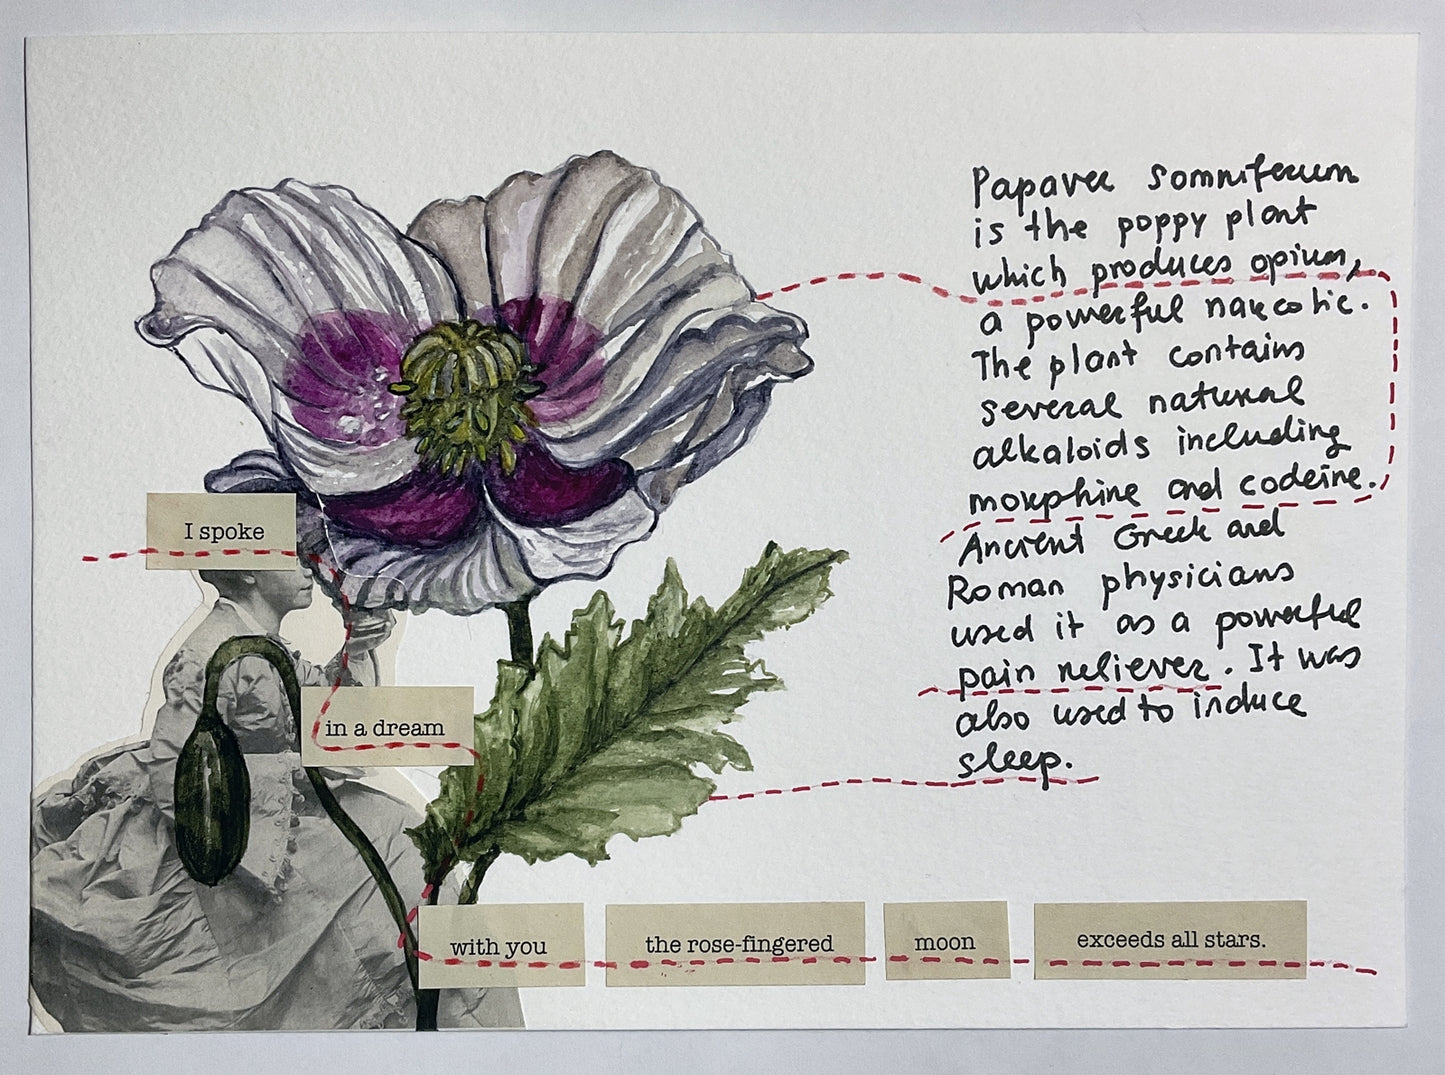 Papaver somniferum
is the poppy plant
which produces opium,
a powerful narcotic.
The plant contains
several natural
alkaloids including
morphine and codeine.
Ancient Greek and
Roman physicians
used it as a powerful
pain reliever. It was
also used to induce
sleep.
I spoke
in a dream
with you
the rose-fingered
moon
exceeds all stars.